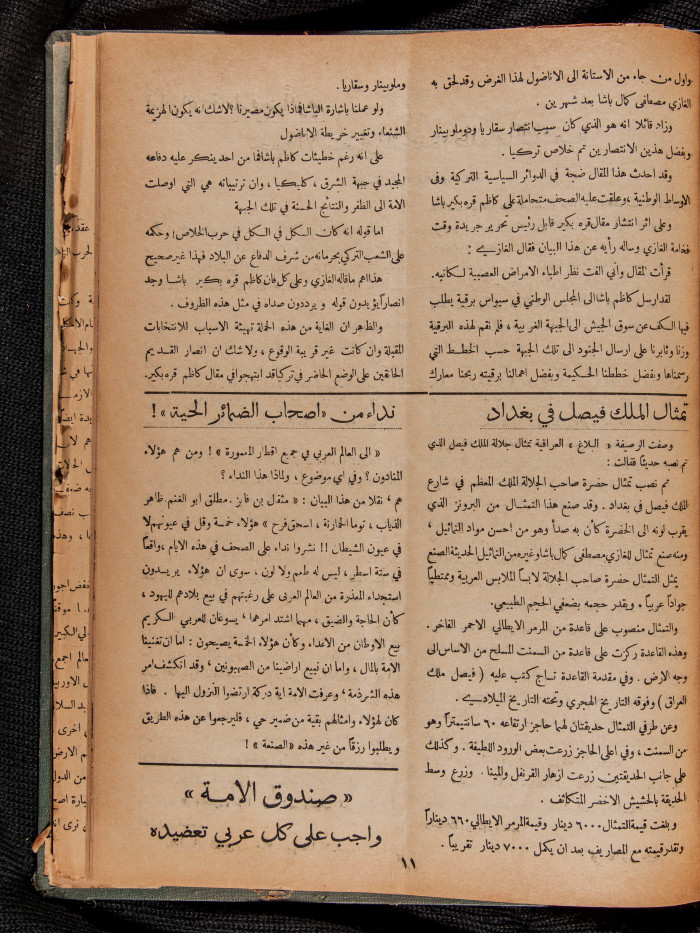 واول من جاء من الاستانة الى الاناضول لهذا الغرض وقد لحق به
الغازي مصطفى كمال باشا بعد شهرين .
وزاد قائلا انه هو الذي كان سبب انتصار سقاريا ودوملوبينار
وبفضل هذين الانتصارين تم خلاص تركيا .
وقد احدث هذا المقال ضجة في الدوائر السياسية التركية وفى
الاوساط الوطنية ، وعلقت عليه الصحف متحاملة على كاظم قره بكير باشا
وعلى اثر انتشار مقال قره بكير قابل رئيس تحرير جريدة وقت
فخامة الغازي وساله رأيه عن هذا البيان فقال الغازي :
قرأت المقال وأني الفت نظر اطباء الامراض العصبية لكاتبه.
لقد ارسل كاظم باشا الى المجلس الوطني في سيواس برقية يطلب
فيها الكف عن سوق الجيش الى الجبهة الغربية ، فلم نقم لهذه البرقية
وزنا وثابرنا على ارسال الجنود الى تلك الجبهة حسب الخطط التي
رسمناها وبفضل خططنا الحكيمة وبفضل اعمالنا برقيته ربحنا معارك
تمثال الملك فيصل في بغداد
وصفت الرصيفة « البلاغ » العراقية تمثال جلالة الملك فيصل الذي
تم نصبه حديثا فقالت :
تم نصب تمثال حضرة صاحب الجلالة الملك المعظم في شارع
الملك فيصل في بغداد . وقد صنع هذا التمثال من البرونز الذي
يقرب لونه الى الخضرة كأن به صدأ وهو من احسن مواد التماثيل ،
ومنه صنع تمثال للغازي مصطفى كمال باشا وغيره من التماثيل الحديثة الصنع
يمثل التمثال حضرة صاحب الجلالة لابساً الملابس العربية وممتطياً
جواداً عربياً . ويقدر حجمه بضعفي الحجم الطبيعي.
والتمثال منصوب على قاعدة من المرمر الايطالي الاحمر الفاخر .
وهذه القاعدة ركزت على قاعدة من السمنت المسلح من الاساس الى
وجه الارض . وفي مقدمة القاعدة تاج كتب عليه ( فيصل ملك
العراق ) وفوقه التاريخ الهجري وتحته التاريخ الميلادي .
وعن طرفي التمثال حديقتان لهما حاجز ارتفاعه ٦٠ سانتيمتراً وهو
من السمنت ، وفي اعلى الحاجز زرعت بعض الورود اللطيفة . وكذلك
على جانب الحديقتين زرعت ازهار القرنفل والمينا . وزرع وسط
الحديقة بالحشيش الاخضر المتكاثف .
وبلغت قيمة التمثال ٦٠٠٠ دينار وقيمة المرمر الايطالي ٦٦٠ ديناراً
وتقدر قيمته مع المصاريف بعد ان يكمل ٧٠٠٠ دينار تقريباً .
وملوبينار وسقاريا .
ولو عملنا باشارة الباشا فماذا يكون مصيرنا ؟ لاشك انه يكون الهزيمة
الشنعاء وتغيير خريطة الاناضول
على انه رغم خطيئات كاظم باشا فما من احد ينكر عليه دفاعه
المجيد في جبهة الشرق ، كليكيا ، وان ترتيباته هي التي اوصلت
الامة الى الظفر والنتائج الحسنة في تلك الجبهة
اما قوله انه كان الكل في الكل في حرب الخلاص ؛ وحكمه
على الشعب التركي بحرمانه من شرف الدفاع عن البلاد فهذا غير صحيح
هذا اهم ما قاله الغازي وعلى كل فان كاظم قره بكير باشا وجد
انصاراً يؤيدون قوله ويرددون صداه في مثل هذه الظروف .
والظاهر ان الغاية من هذه الحملة تهيئة الاسباب للانتخابات
المقبلة وان كانت غير قريبة الوقوع ، ولا شك ان انصار القديم
الحانقين على الوضع الحاضر في تركيا قد ابتهجوا في مقال كاظم قره بكير.
نداء من « اصحاب الضمائر الحية » !
« الى العالم العربي في جميع اقطار المعمورة » ! ومن هم هؤلاء
المنادون ؟ وفي اي موضوع ، ولماذا هذا النداء ؟
هم ، نقلا من هذا البيان : « مثقال بن فايز . مطلق ابو الغنم . ظاهر
الذياب ، توما الخمارنة ، اسحق فرح » هؤلاء خمسة وقل في عيونهم لا
في عيون الشيطان !! نشروا نداء على الصحف في هذه الايام ، واقعاً
في ستة اسطر ، ليس له طعم ولا لون ، سوى ان هؤلاء يريدون
استجداء المعذرة من العالم العربي على رغبتهم في بيع بلادهم لليهود ،
كأن الحاجة والضيق ، مهما اشتد امرهما ، يسوغان للعربي الكريم
بيع الاوطان من الاعداء وكأن هؤلاء الخمسة يصيحون : اما ان تغنينا
الامة بالمال ، واما ان نبيع اراضينا من الصهيونين ، وقد انكشف امر
هذه الشرذمة ، وعرفت الامة اية دركة ارتضوا النزول اليها . فاذا
كان لهؤلاء وامثالهم بقية من ضمير حي ، فليرجعوا عن هذه الطريق
ويطلبوا رزقا من غير هذه « الصنعة » !
« صندوق الامة »
واجب على كل عربي تعضيده
١١